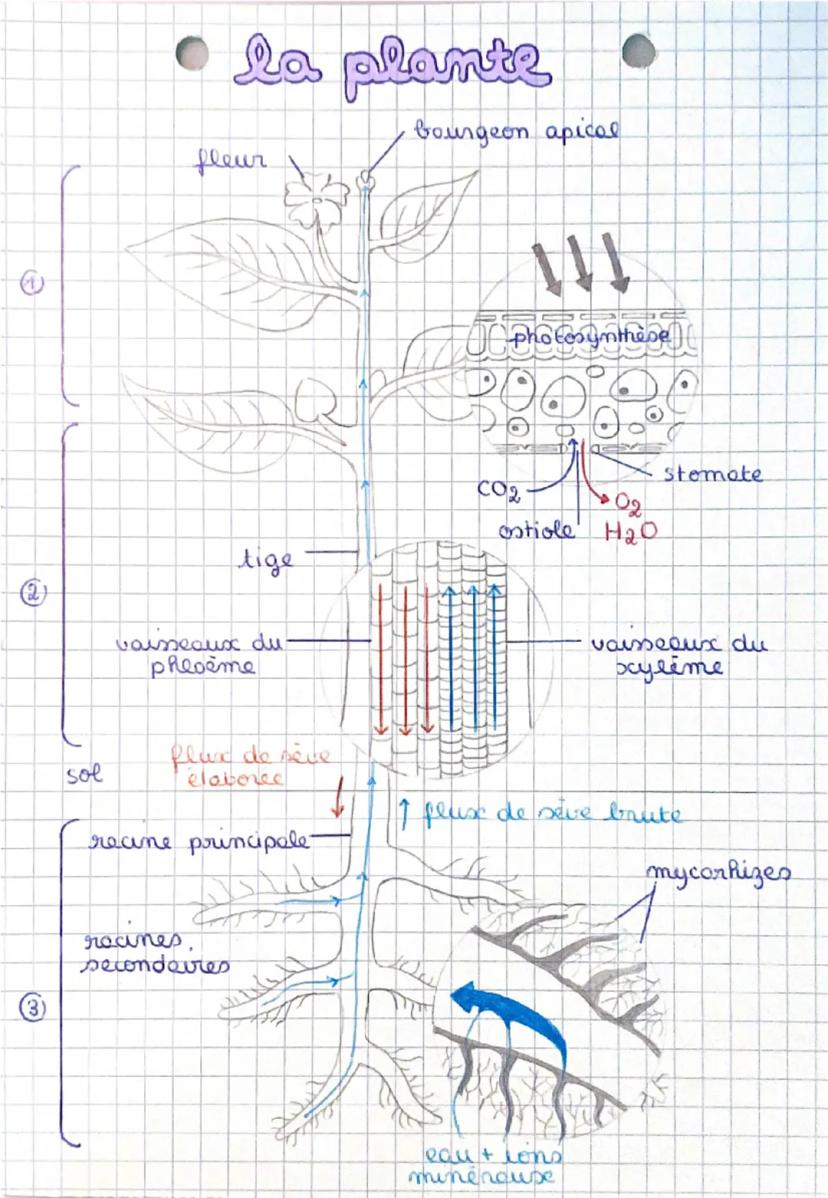 la plante
bourgeon apical
fleur
①
photosynthèse
stomate
CO2
O2
ostiole
H2O
tige
②
vaisseaux du
phloème
vaisseaux du
xylème
flux de sève
élaborée
sol
↑ flux de sève brute
racine principale
mycorhizes
racines
secondaires
③
eau + ions
minéraux